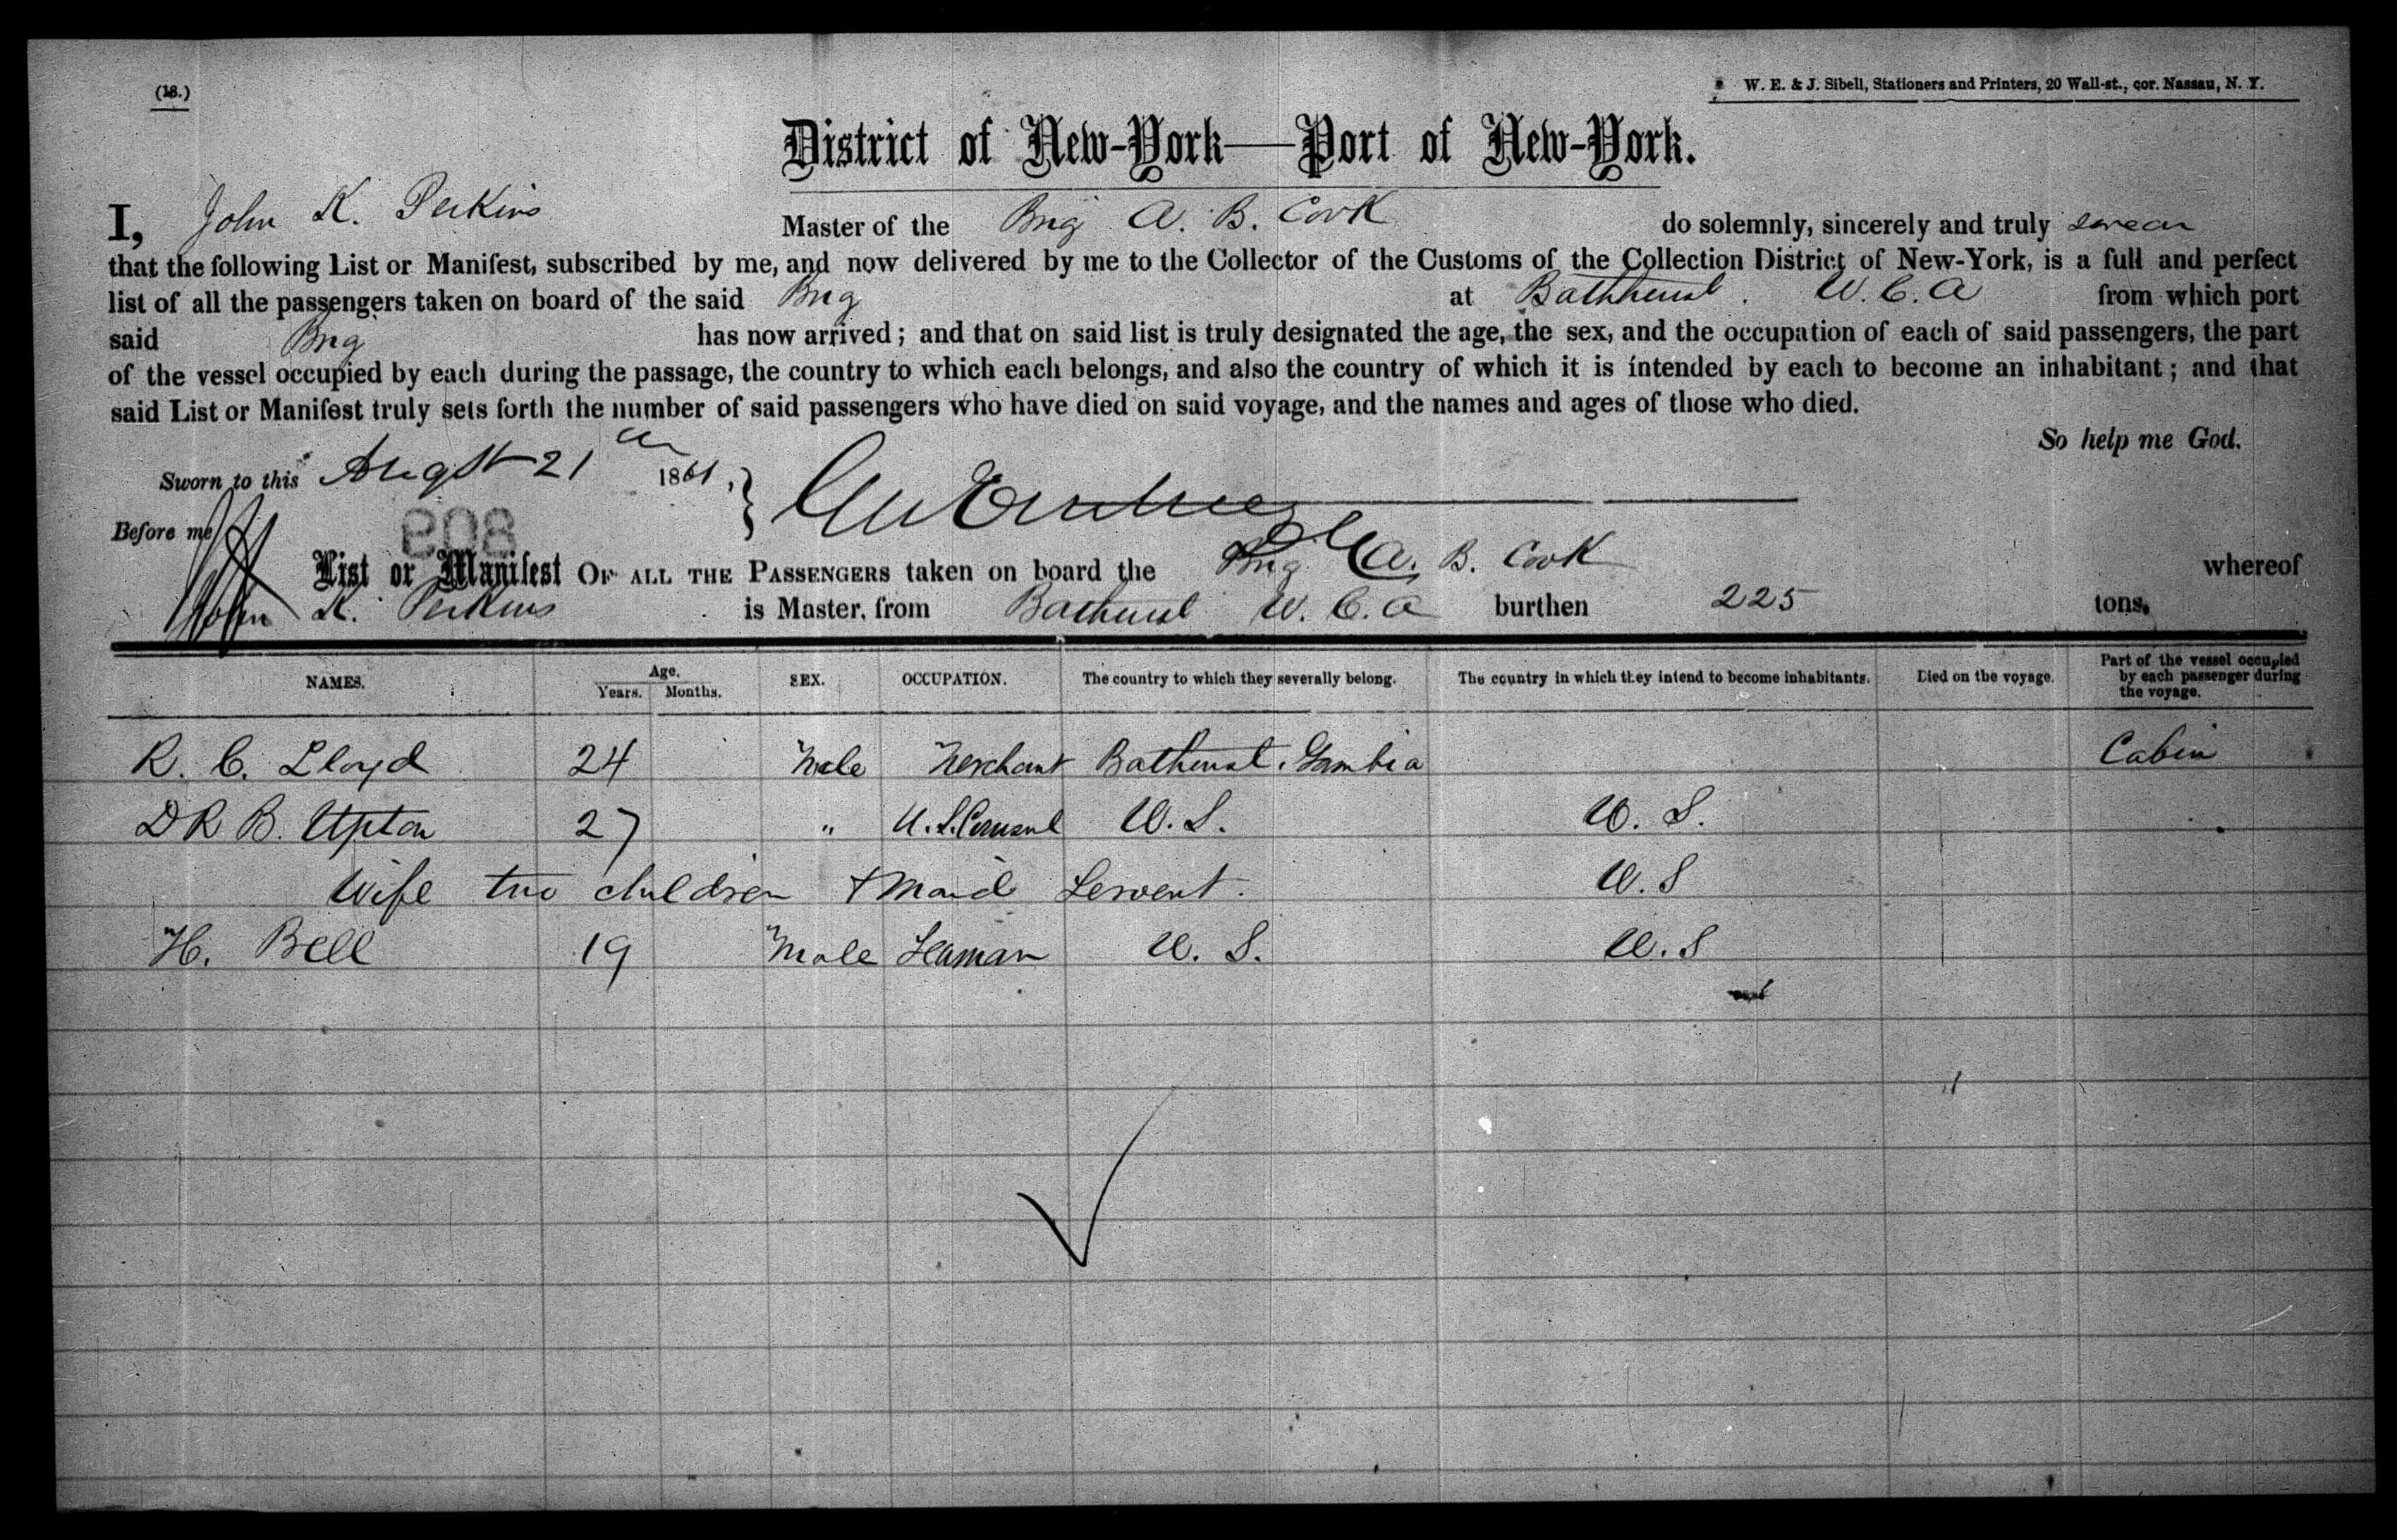 (18.)
W. E. & J. Sibell, Stationers and Printers, 20 Wall-st., cor. Nassau, N. Y.
District of New-York—Port of New-York.
I, John K. Perkins Master of the Brig A. B. Cook do solemnly, sincerely and truly swear
that the following List or Manifest, subscribed by me, and now delivered by me to the Collector of the Customs of the Collection District of New-York, is a full and perfect
list of all the passengers taken on board of the said Brig at Bathurst. W. C. A from which port
said Brig has now arrived; and that on said list is truly designated the age, the sex, and the occupation of each of said passengers, the part
of the vessel occupied by each during the passage, the country to which each belongs, and also the country of which it is intended by each to become an inhabitant; and that
said List or Manifest truly sets forth the number of said passengers who have died on said voyage, and the names and ages of those who died.
So help me God.
Sworn to this August 21 1861,
Before me
808
List or Manifest OF ALL THE PASSENGERS taken on board the Brig A. B. Cook whereof
John K. Perkins is Master, from Bathurst W. C. A burthen 225 tons.
NAMES. Age. Years. Months. SEX. OCCUPATION. The country to which they severally belong. The country in which they intend to become inhabitants. Died on the voyage. Part of the vessel occupied by each passenger during the voyage.
R. C. Lloyd 24 Male Merchant Bathurst, Gambia Cabin
D R B. Upton 27 " U. S. Consul U. S. U. S.
Wife two children + Maid Servent. U. S
H. Bell 19 Male Seaman U. S. U. S